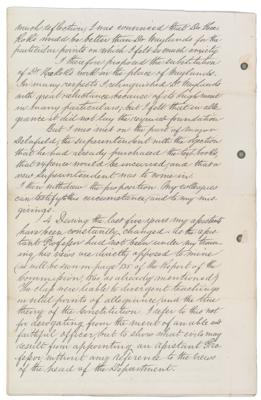 much reflection, I was convinced that Dr
would be better than Dr Wayland's for the
particular points on which I felt so much anxiety.
I therefore proposed the substitution
of Dr work in the place of Wayland's.
In many respects I relinquished Dr Wayland's
with great reluctance, because of its high merit
in many particulars; but I felt that in alle-
giance it did not lay the required foundation
But I was met on the part of Major
Delafield, the superintendent with the objection
that he had already purchased the text books,
that expense would be incurred, and that a
new Superintendent was to come in.
I then withdrew the proposition. My colleagues
can testify this circumstance, and to my mis-
givings.
During the last five years my assistants
have been constantly changed. As the assis-
tant Professor had not been under my train-
ing his views are directly opposed to mine
as will be seen on page of the Report of the
Commission, the as already mentioned.
The class were liable to divergent teachings
in vital points of allegiance, and the true
theory of the Constitution. I refer to this not
for derogating from the merit of an able and
faithful officer, but to show what evils may
result from appointing an assistant Pro-
fessor without any reference to the views
of the head of the Department.